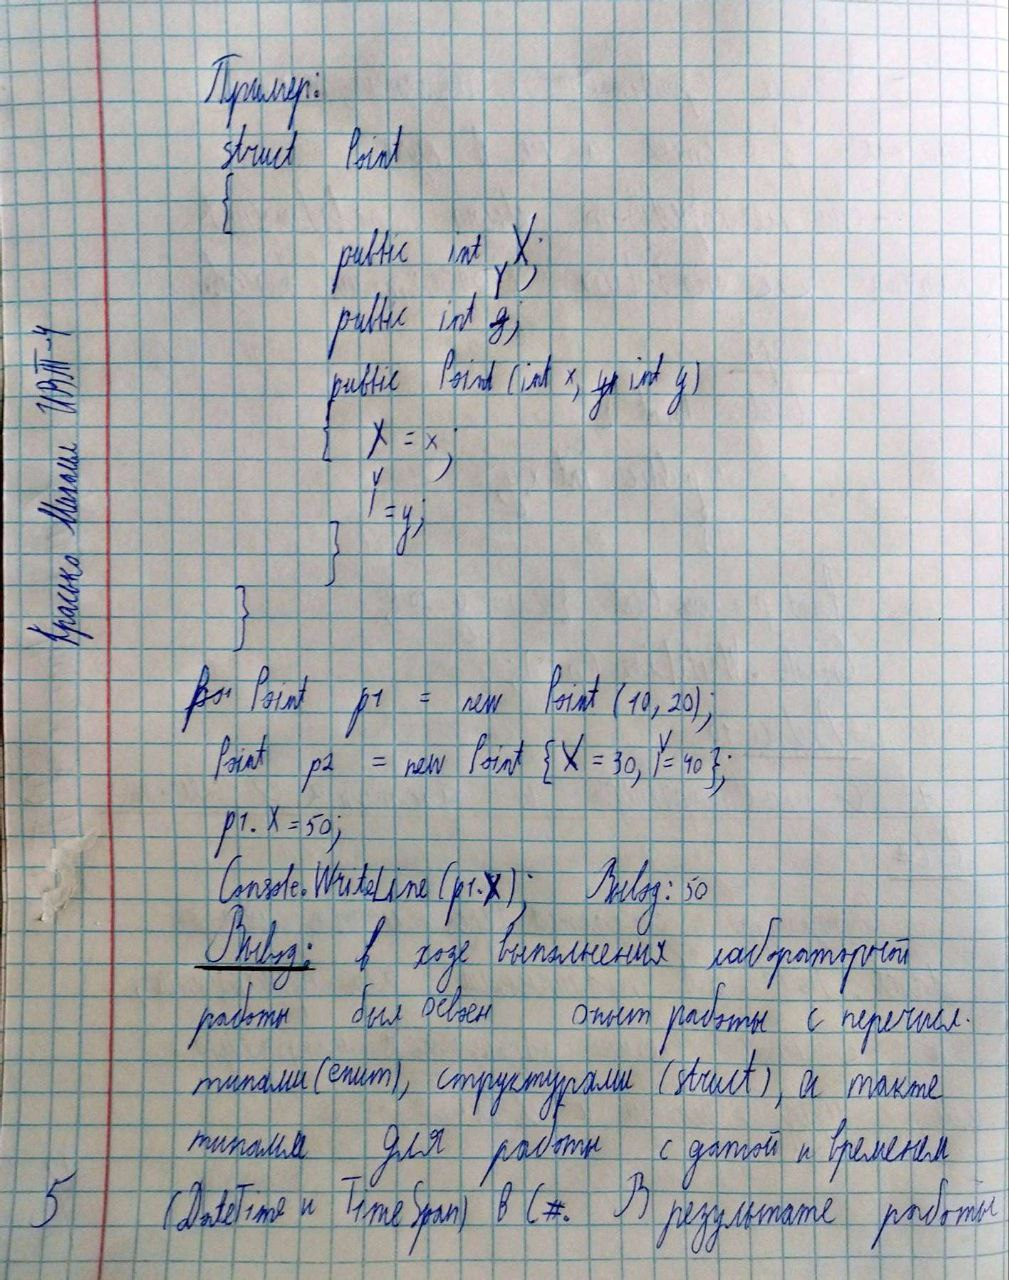 Пример:
struct Point
{
public int X;
public int Y;
public Point (int x, int y)
{ X = x;
Y = y;
}
}
Point p1 = new Point (10, 20);
Point p2 = new Point {X = 30, Y = 40};
p1.X = 50;
Console.WriteLine (p1.X); Вывод: 50
Вывод: в ходе выполнения лабораторной
работы был освоен опыт работы с перечисл.
типами (enum), структурами (struct), а также
типами для работы с датой и временем
5 (DateTime и TimeSpan) в C#. В результате работы
ИВТII-4